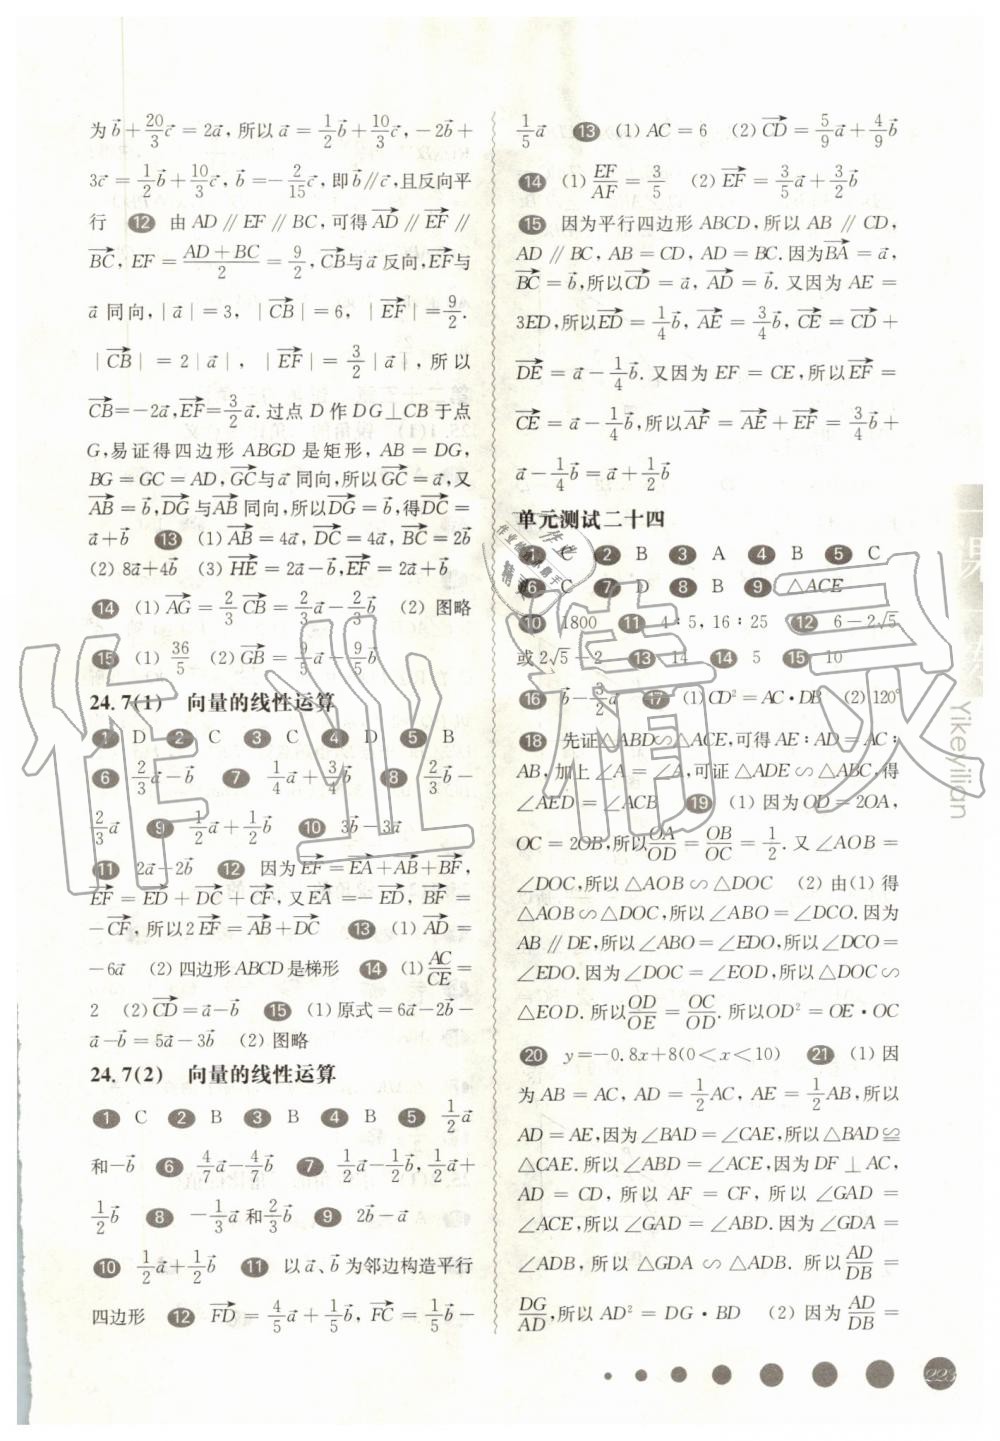 为b⃗+20/3 c⃗=2a⃗,所以a⃗=1/2 b⃗+10/3 c⃗,-2b⃗+
3c⃗=1/2 b⃗+10/3 c⃗,b⃗=-2/15 c⃗,即b⃗∥c⃗,且反向平
行 12 由AD∥EF∥BC,可得AD⃗∥EF⃗∥
BC⃗,EF=(AD+BC)/2=9/2,CB⃗与a⃗反向,EF⃗与
a⃗同向,|a⃗|=3,|CB⃗|=6,|EF⃗|=9/2.
|CB⃗|=2|a⃗|,|EF⃗|=3/2|a⃗|,所以
CB⃗=-2a⃗,EF⃗=3/2 a⃗.过点D作DG⊥CB于点
G,易证得四边形ABGD是矩形,AB=DG,
BG=GC=AD,GC⃗与a⃗同向,所以GC⃗=a⃗,又
AB⃗=b⃗,DG⃗与AB⃗同向,所以DG⃗=b⃗,得DC⃗=
a⃗+b⃗ 13 (1)AB⃗=4a⃗,DC⃗=4a⃗,BC⃗=2b⃗
(2)8a⃗+4b⃗ (3)HE⃗=2a⃗-b⃗,EF⃗=2a⃗+b⃗
14 (1)AG⃗=2/3 CB⃗=2/3 a⃗-2/3 b⃗ (2)图略
15 (1)36/5 (2)GB⃗=9/5 a⃗-9/5 b⃗
24.7(1) 向量的线性运算
1 D 2 C 3 C 4 D 5 B
6 2/3 a⃗-b⃗ 7 1/4 a⃗+3/4 b⃗ 8 2/3 b⃗-
2/3 a⃗ 9 1/2 a⃗+1/2 b⃗ 10 3b⃗-3a⃗
11 2a⃗-2b⃗ 12 因为EF⃗=EA⃗+AB⃗+BF⃗,
EF⃗=ED⃗+DC⃗+CF⃗,又EA⃗=-ED⃗,BF⃗=
-CF⃗,所以2EF⃗=AB⃗+DC⃗ 13 (1)AD⃗=
-6a⃗ (2)四边形ABCD是梯形 14 (1)AC/CE=
2 (2)CD⃗=a⃗-b⃗ 15 (1)原式=6a⃗-2b⃗-
a⃗-b⃗=5a⃗-3b⃗ (2)图略
24.7(2) 向量的线性运算
1 C 2 B 3 B 4 B 5 1/2 a⃗
和-b⃗ 6 4/7 a⃗-4/7 b⃗ 7 1/2 a⃗-1/2 b⃗,1/2 a⃗+
1/2 b⃗ 8 -1/3 a⃗和2/3 b⃗ 9 2b⃗-a⃗
10 1/2 a⃗+1/2 b⃗ 11 以a⃗、b⃗为邻边构造平行
四边形 12 FD⃗=4/5 a⃗+1/5 b⃗,FC⃗=1/5 b⃗-
1/5 a⃗ 13 (1)AC=6 (2)CD⃗=5/9 a⃗+4/9 b⃗
14 (1)EF/AF=3/5 (2)EF⃗=3/5 a⃗+3/2 b⃗
15 因为平行四边形ABCD,所以AB∥CD,
AD∥BC,AB=CD,AD=BC.因为BA⃗=a⃗,
BC⃗=b⃗,所以CD⃗=a⃗,AD⃗=b⃗.又因为AE=
3ED,所以ED⃗=1/4 b⃗,AE⃗=3/4 b⃗,CE⃗=CD⃗+
DE⃗=a⃗-1/4 b⃗.又因为EF=CE,所以EF⃗=
CE⃗=a⃗-1/4 b⃗,所以AF⃗=AE⃗+EF⃗=3/4 b⃗+
a⃗-1/4 b⃗=a⃗+1/2 b⃗
单元测试二十四
1 C 2 B 3 A 4 B 5 C
6 C 7 D 8 B 9 △ACE
10 1800 11 4:5,16:25 12 6-2√5
或2√5-2 13 14 14 5 15 10
16 b⃗-3/2 a⃗ 17 (1)CD²=AC·DB (2)120°
18 先证△ABD∽△ACE,可得AE:AD=AC:
AB,加上∠A=∠A,可证△ADE∽△ABC,得
∠AED=∠ACB 19 (1)因为OD=2OA,
OC=2OB,所以OA/OD=OB/OC=1/2.又∠AOB=
∠DOC,所以△AOB∽△DOC (2)由(1)得
△AOB∽△DOC,所以∠ABO=∠DCO.因为
AB∥DE,所以∠ABO=∠EDO,所以∠DCO=
∠EDO.因为∠DOC=∠EOD,所以△DOC∽
△EOD.所以OD/OE=OC/OD.所以OD²=OE·OC
20 y=-0.8x+8(0<x<10) 21 (1)因
为AB=AC,AD=1/2 AC,AE=1/2 AB,所以
AD=AE,因为∠BAD=∠CAE,所以△BAD≌
△CAE.所以∠ABD=∠ACE,因为DF⊥AC,
AD=CD,所以AF=CF,所以∠GAD=
∠ACE,所以∠GAD=∠ABD.因为∠GDA=
∠ADB,所以△GDA∽△ADB.所以AD/DB=
DG/AD,所以AD²=DG·BD (2)因为AD/DB=
Yikeyilian
223
作业精灵